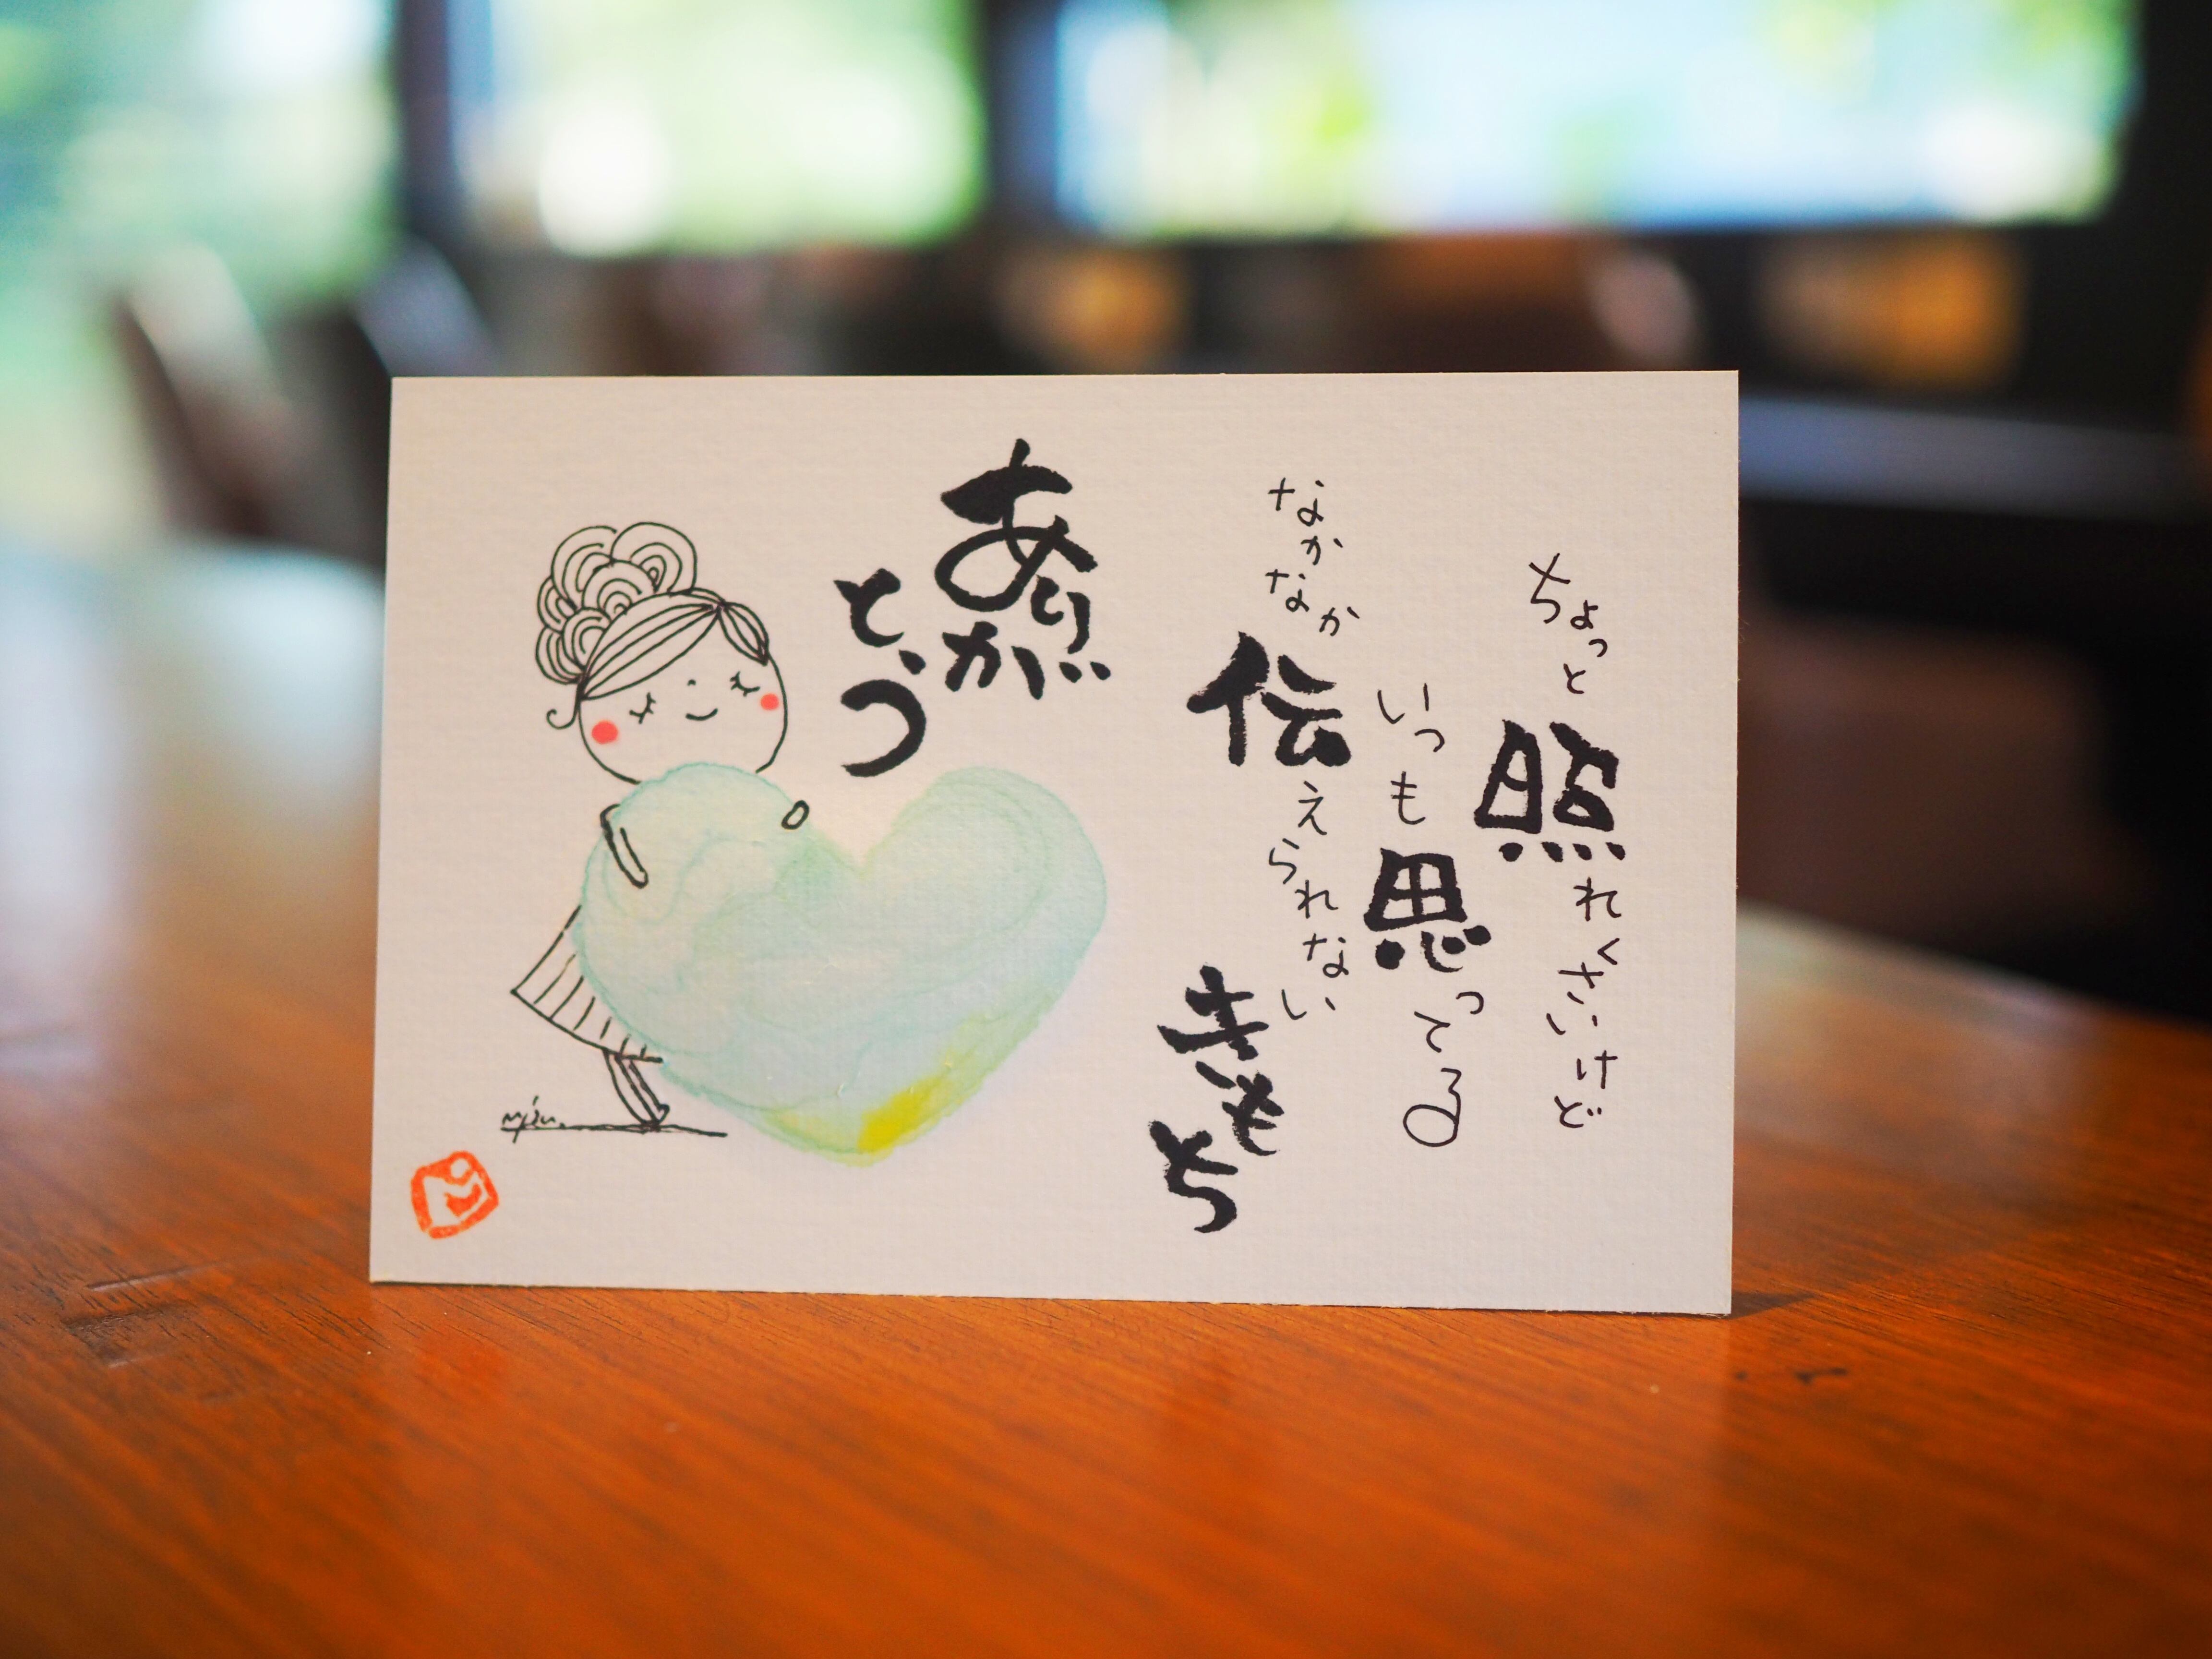 ちょっと照れくさいけど
いつも思ってる
なかなか伝えられない
きもち
ありが
とう